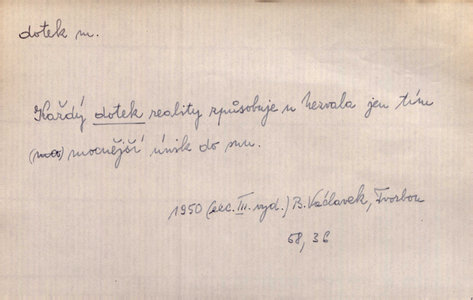 dotek m.
Každý dotek reality způsobuje u Nezvala jen tím
mocnější únik do snu.
1950 (exc. III. vyd.) B. Václavek, Tvorbou
68, 36